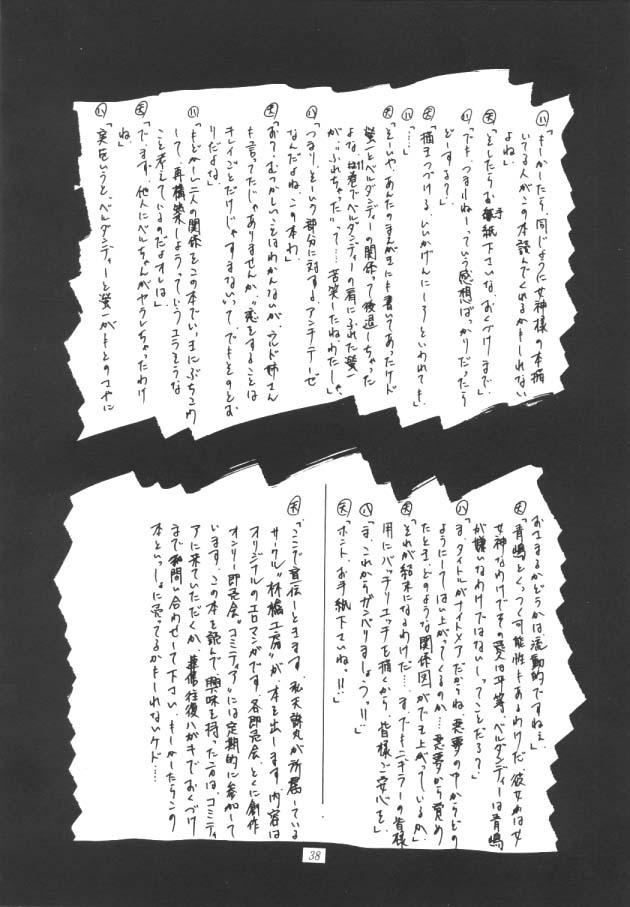 ㋩「もしかしたら、同じように女神様の本描
いてる人がこの本読んでくれるかもしれない
よね。」
㊝「そしたらお手紙下さいな、おくづけまで」
㋩「でも、つまりねーっていう感想ばっかりだったら
どーする?」
㊝「描きつづける。いいかげんにしろーといわれても」
㋩「…」
㊝「そーいや、あんたのまえがきにも書いてあったケド
螢一とベルダンディーの関係って後退しちゃった
よな。11巻でベルダンディーの肩にふれた螢一
が、〝ふれちゃった〟って……苦笑したねわたしゃ」
㋩「つまり、そーいう部分に対するアンチテーゼ
なんだよね、この本わ」
㊝「お?、むつかしいことはわかんないが、ウルド姉さん
も言ってたじゃありませんか、〝恋をすることは
キレイごとだけじゃすまない〟って、でもそのとお
りだよな」
㋩「もどかしい二人の関係をこの本でいっきにぶちこわ
して、再構築しようっていうエラそうな
こと考えているのだよオレは」
㊝「でます、他人にベルちゃんがヤラレちゃったわけ
ね」
㋩「実をいうと、ベルダンディーと螢一がもとのさやに
おさまるかどうかは、流動的ですねぇ」
㊝「青嶋とくっつく可能性もあるわけだ。彼女わは女
女神なわけでその愛は平等、ベルダンディーは青嶋
が嫌いなわけではないーってことだろ?」
㋩「ま、タイトルがナイトメアだからね、悪夢の中からどの
ようにしてはい上がってくるのか…悪夢から覚め
たとき、どのような関係図ができ上がっているか」
㊝「それが結末になるわけだ……すでにキニナラーの皆様
用にバッチリエッチを描くから、皆様ご安心を」
㋩「ま、これからガンバりましょうっ!!」
㊝「ホント、お手紙下さいね。!!」
㊝「ここで宣伝しときます、私天誅丸が所属している
サークル〝林檎工房〟が本を出します。内容は
オリジナルのエロマンガです。各即売会、とくに創作
オンリー即売会〝コミティア〟には定期的に参加して
います。この本を読んで興味を持った方は、コミティ
アに来ていただくか、葉書往復ハガキでおくづけ
まで問い合わせて下さい。もしかしたらこの
本といっしょに売ってるかもしれないケド……
38